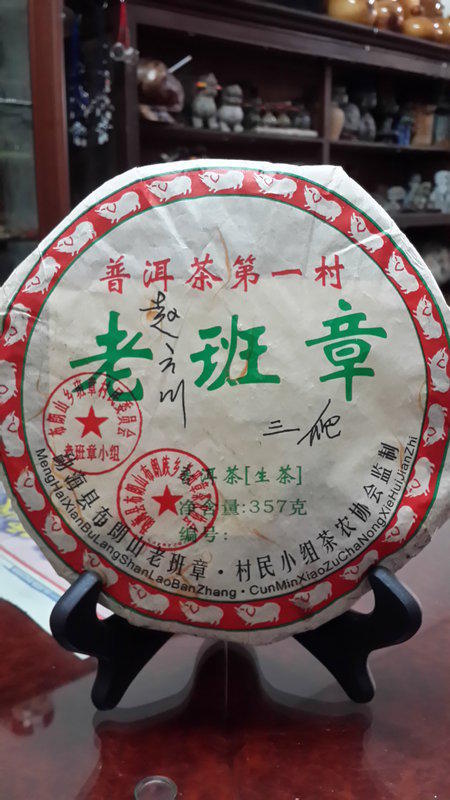 普洱茶第一村
老班章
赵云川
三爬
布朗山乡班章村民委员会
老班章小组
普洱茶[生茶]
净含量:357克
编号:
勐海县布朗山老班章·村民小组茶农协会监制
MengHaiXianBuLangShanLaoBanZhang·CunMinXiaoZuChaNongXieHuiJianZhi